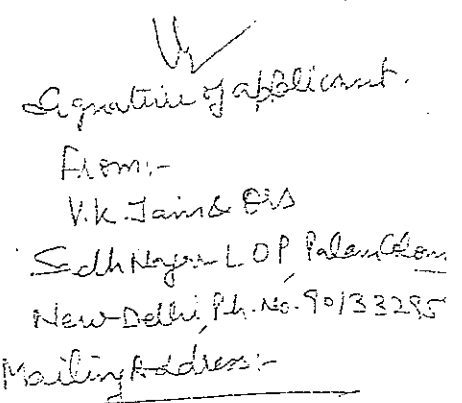 Signature of applicant.
From:-
V.K. Jain & Ors
Sadh Nagar L OP, Palam Colony
New Delhi, Ph. No. 90133295
Mailing Address:-